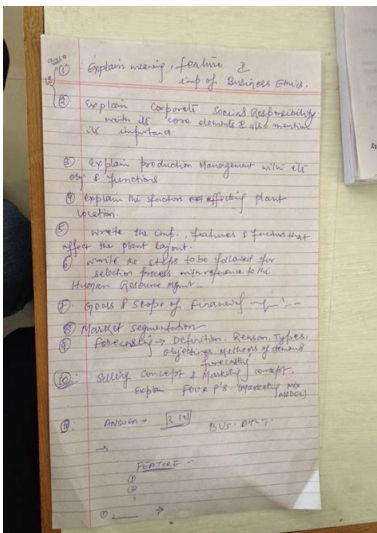 ① Explain meaning, feature &
imp of Business Ethics.
② Explain Corporate Social Responsibility
with its core elements & also mention
its importance
③ explain production Management with its
obj & functions
④ explain the factors affecting plant
location.
⑤ write the imp., features & factors that
affect the plant layout.
⑥ write the steps to be followed for
selection process with reference to the
Human Resource mgmt.
⑦ Goals & Scope of financing
⑧ Market segmentation
⑨ forecasting → Definition. Reason. Types.
objectives. Methods of demand
forecasting
⑩ Selling Concept & Marketing concept.
explain four P's. Marketing Mix
⑪ ANSWER →
FEATURE -
①
②